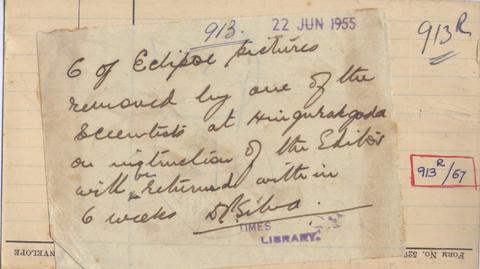 913. 22 JUN 1955
913R
6 of Eclipse pictures
removed by one of the
Scientists at Hingurakgoda
on instruction of the Editor
will be returned within
6 weeks
TIMES
LIBRARY.
913R/67
ENVELOPE
FORM NO. 529